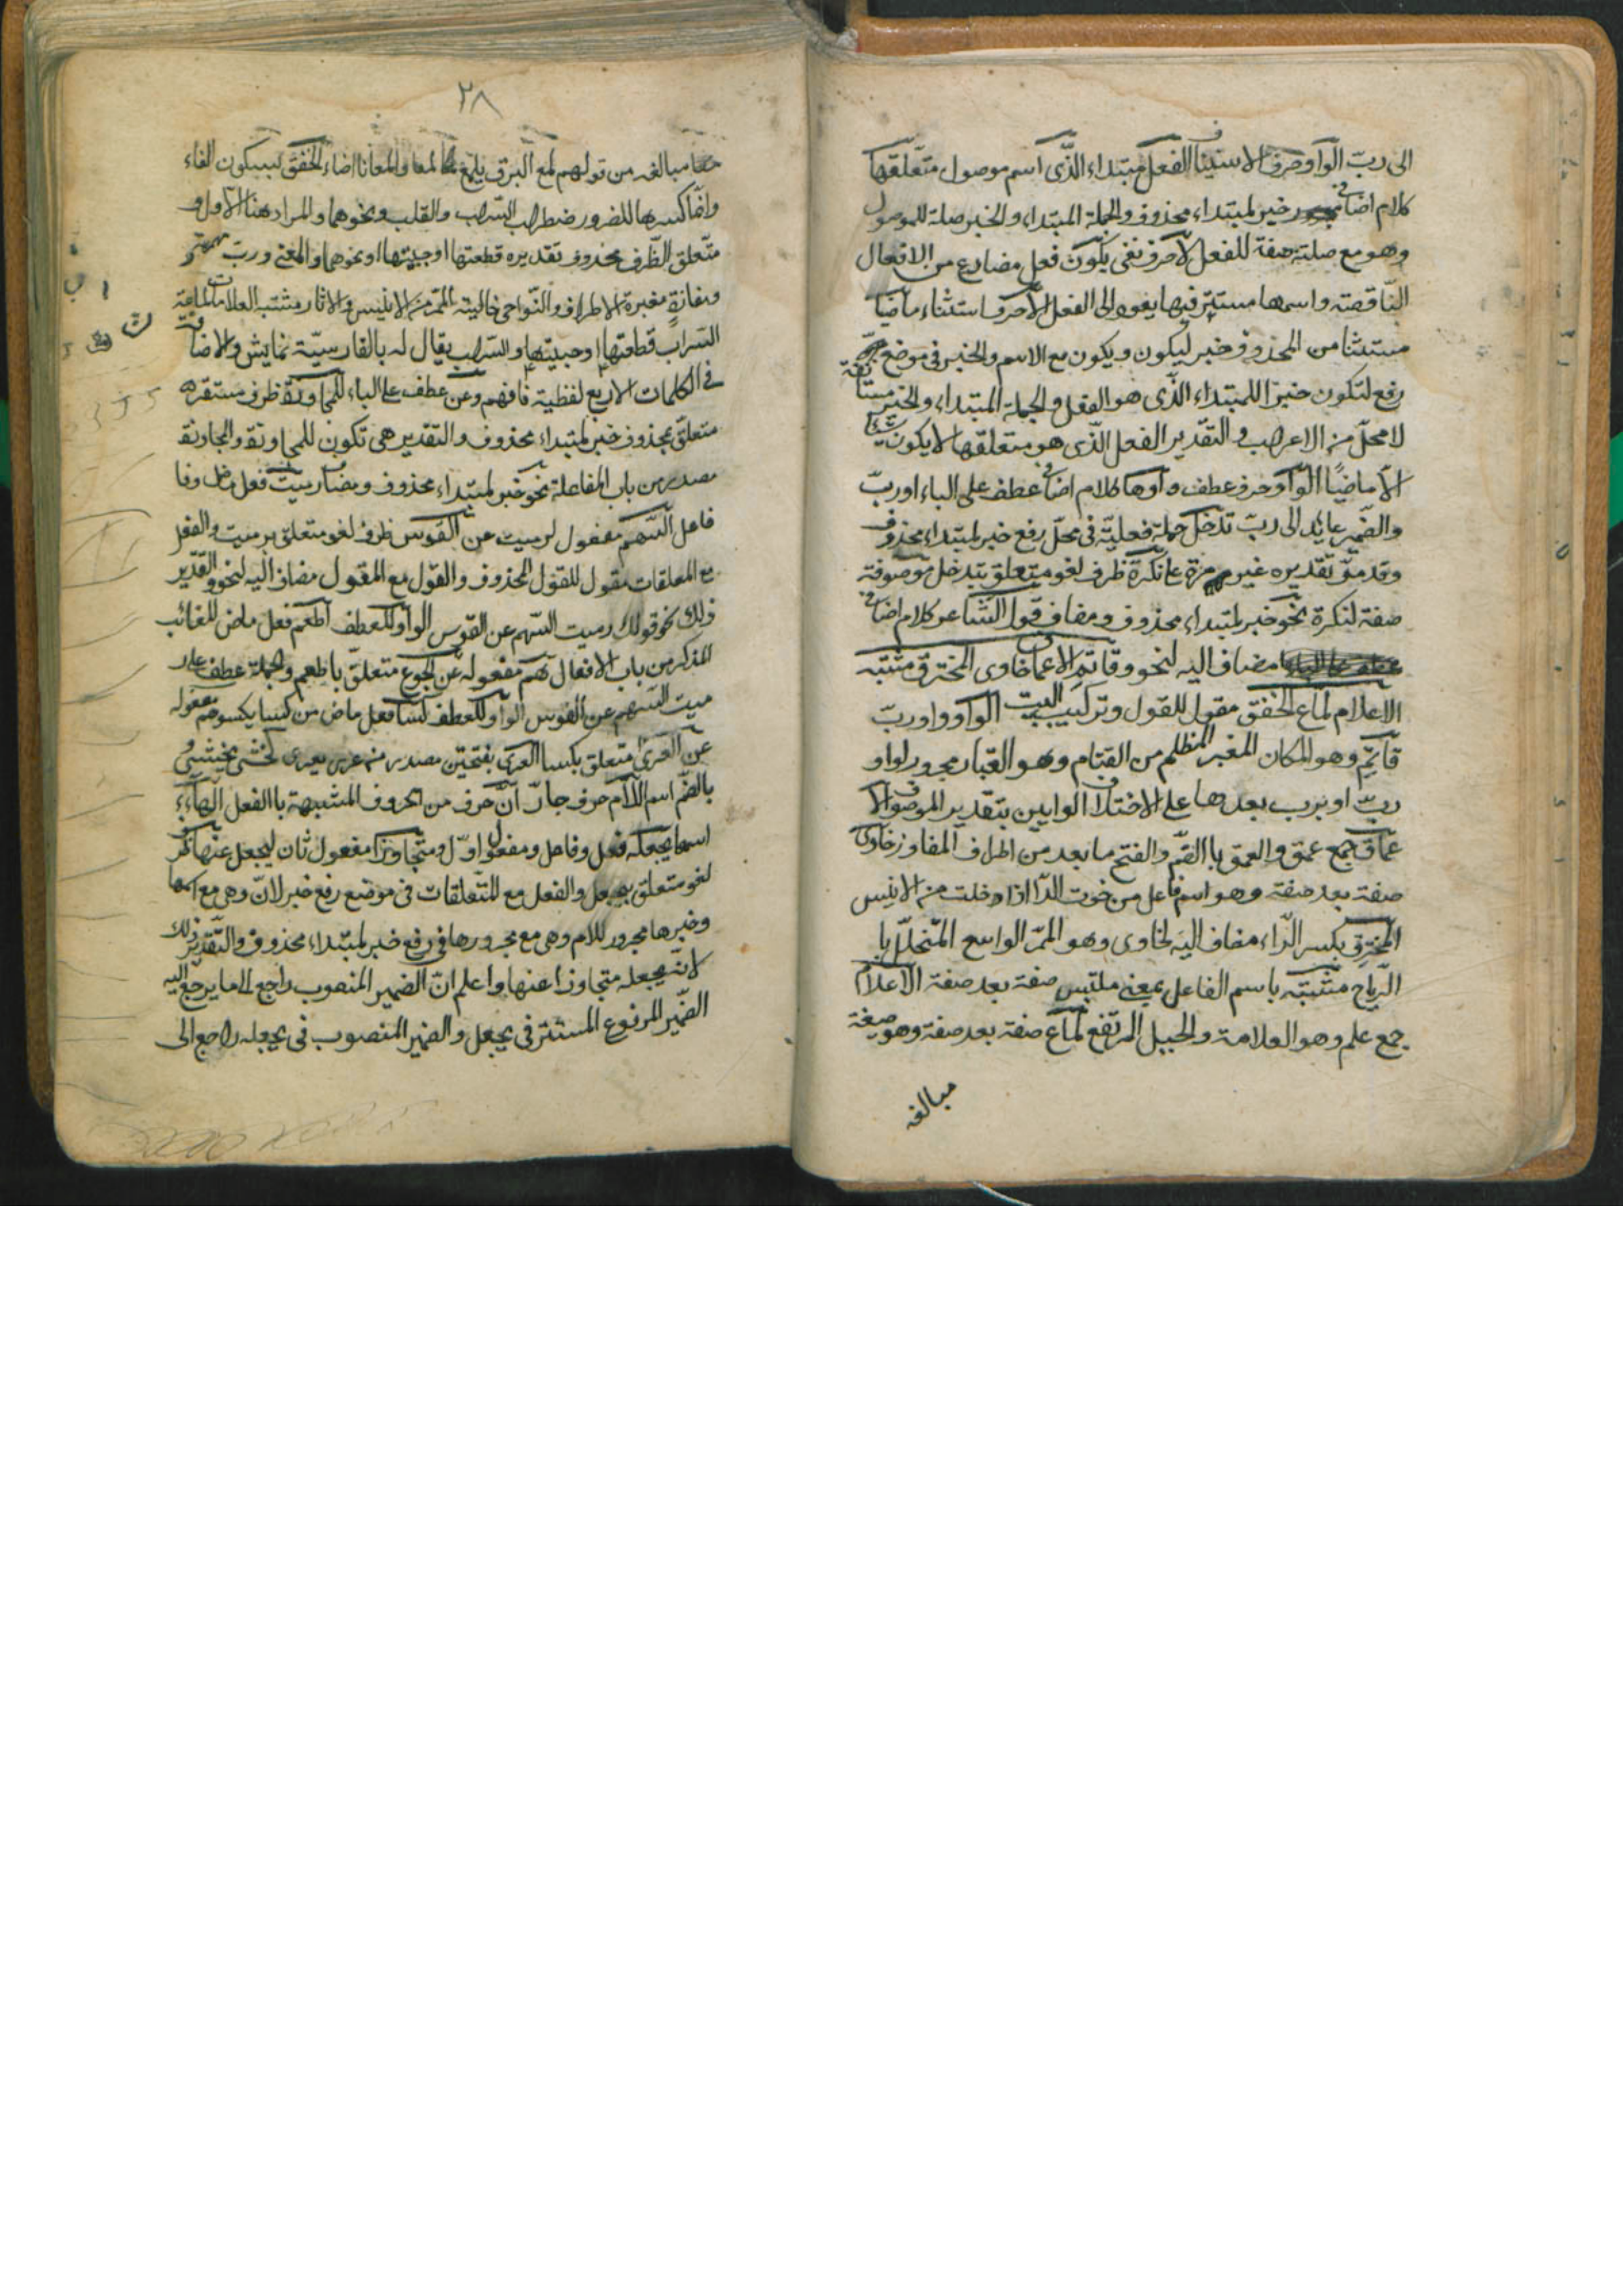 الى ربّ الواو حرف الاستينا ف الفعل مبتداء الذّى اسم موصول متعلّقها
كلام اضافى خبر لمبتداء محذوف والجملة المبتداء والخبر صلة للموصول
وهو مع صلته صفة للفعل لا حرف نفى يكون فعل مضارع من الافعال
النّاقصة واسمها مستتر فيها يعود الى الفعل الاّ حرف استثناء ماضيا
مستثنا من المحذوف خبر ليكون ويكون مع الاسم والخبر فى موضع
رفع لتكون خبرا للمبتداء الذّى هو الفعل والجملة المبتداء والخبر مستأنفة
لا محلّ من الاعراب والتقدير الفعل الذّى هو متعلقها لا يكون شيئا
الاّ ماضيًا الواو حرف عطف واوها كلام اضافى عطف على الباء او ربّ
والضّمير عايد الى ربّ تدخل جملة فعليّة فى محلّ رفع خبر لمبتداء محذوف
وقد مرّ تقديره غير مرة على نكرة ظرف لغو متعلق بتدخل موصوفة
صفة لنكرة نحو خبر لمبتداء محذوف ومضاف قول الشاعر كلام اضافى
مضاف اليه لنحو وقاتم الاعماق خاوى المخترق مشتبه
الاعلام لماع الخفق مقول للقول وتركيب البيت الواو واو ربّ
قاتم وهو المكان المغبر المظلم من القتام وهو الغبار مجرور لواو
ربّ او برب بعدها على الاختلاف الوايين بتقدير الموصوف الا
عماق جمع عمق والعمق باالضّم والفتح ما بعد من اطراف المفاوز خاوى
صفة بعد صفة وهو اسم فاعل من خوت الدّار اذا خلت من الانيس
المخترق بكسر الرّاء مضاف اليه لخاوى وهو الممرّ الواسع المتخلّل با
الرّياح مشتبه باسم الفاعل بمعنى ملتبس صفة بعد صفة الاعلام
جمع علم وهو العلامة والجبل المرتفع لماع صفة بعد صفة وهو صيغة
مبالغه
٢٨
مبالغه من قولهم لمع البرق يلمع لمعا ولمعانا اذا ضاء الخفق بسكون الفاء
وانّما كسرها للضرور ضطراب السّراب والقلب ونحوهما والمراد هنا الاول و
متّعلق الظّرف محذوف تقديره قطعتها او جبيتها او نحوهما والمعنى وربّ
ومفازة مغبرة الاطراف والنّواحى خالية الممرّ من الانيس والاثار مشتبه العلامات
السّراب قطعتها او جبيتها والسّراب يقال له بالفارسيّة نمايش والاضافة
فى الكلمات الاربع لفظية فافهم وعن عطف على الباء للمجاوزة ظرف مستقر
متعلّق بمحذوف خبر لمبتداء محذوف والتقدير هى تكون للمجاوزة والمجاوزة
مصدر من باب المفاعلة نحو خبر لمبتداء محذوف ومضاف رميت فعل ماض وفا
فاعل السّهم مفعول لرميت عن القوس ظرف لغو متعلق برميت والفعل
مع المعلقات مقول للقول المحذوف والقول مع المقول مضاف اليه لنحو والتقدير
ذلك نحو قولك رميت السّهم عن القوس الواو للعطف اطعم فعل ماض للغائب
المذكر من باب الافعال هم مفعوله عن الجوع متعلّق باطعم والجملة عطف على ر
ميت السّهم عن القوس الواو للعطف كسا فعل ماض من كسا يكسو هم مفعوله
عن العرى متعلق بكسا العرى بفتحتين مصدر من عرى يعرى
بالضّم اسم اللاّم حرف جارّ انّ حرف من الحروف المشبهة باالفعل الهاء
اسمها يجعله فعل وفاعل ومفعول اوّل ومتجاوزا مفعول ثان ليجعل عنها ظرف
لغو متعلق بيجعل والفعل مع المتعلقات فى موضع رفع خبر لانّ وهى مع اسمها
وخبرها مجرور للام وهى مع مجرورها فى رفع خبر لمبتداء محذوف والتّقدير ذلك
لانّه يجعله متجاوزا عنها واعلم انّ الضمير المنصوب راجع الى ما يرجع اليه
الضّمير المرفوع المستتر فى يجعل والضمير المنصوب فى يجعله راجع الى